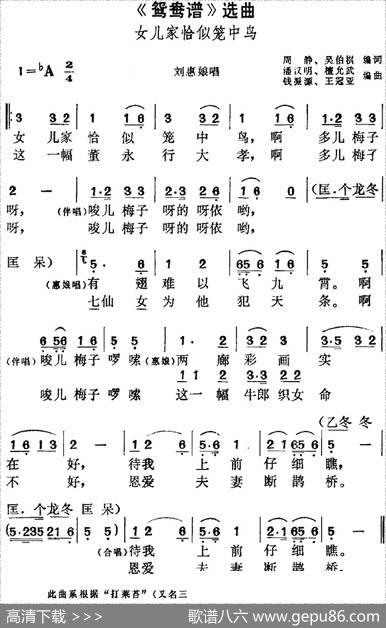 《鸳鸯谱》选曲
女儿家恰似笼中鸟
周静、吴伯祺 编词
1=♭A 2/4 刘惠娘唱 潘汉明、檀允武 编曲
钱振源、王冠亚
3 3 2 1 1 6 3 3 2 1 6 1·2 3 3
女儿家恰似笼中鸟,啊多儿梅子
这一幅董永行大孝,啊多儿梅子
2 — 1·2 3 3 2 3 2 2·6 1 6 0 (匡.个龙冬
呀,(伴唱)唆儿梅子呀的呀依哟,
呀,唆儿梅子呀的呀依哟,
匡呆) 5· 6 1 2 6 5 6 1 6 5·
(惠娘唱)有翅难以飞九霄。啊
七仙女为他犯天条。啊
6 5 6 1 6 5 5 1·2 3 2 3 5 3 2
(伴唱)唆儿梅子啰嗦(惠娘)两廊彩画实
1 1 1 3·2 2 2
唆儿梅子啰嗦这一幅牛郎织女命
1 6 1 3 2 — 1 2 6 5·6 1 2·1 6 5 6 5 — (乙冬冬
在好,待我上前仔细瞧,
不好,恩爱夫妻断鹊桥。
匡.个龙冬匡呆)
(5·2 3 5 2 1 6 5 5) 1 2 6 5·6 1 2·1 6 5 6 5 —
(合唱)待我上前仔细瞧。
恩爱夫妻断鹊桥。
此曲系根据“打菜苔”(又名三
高清下载 >>> 歌谱八六 www.gepu86.com